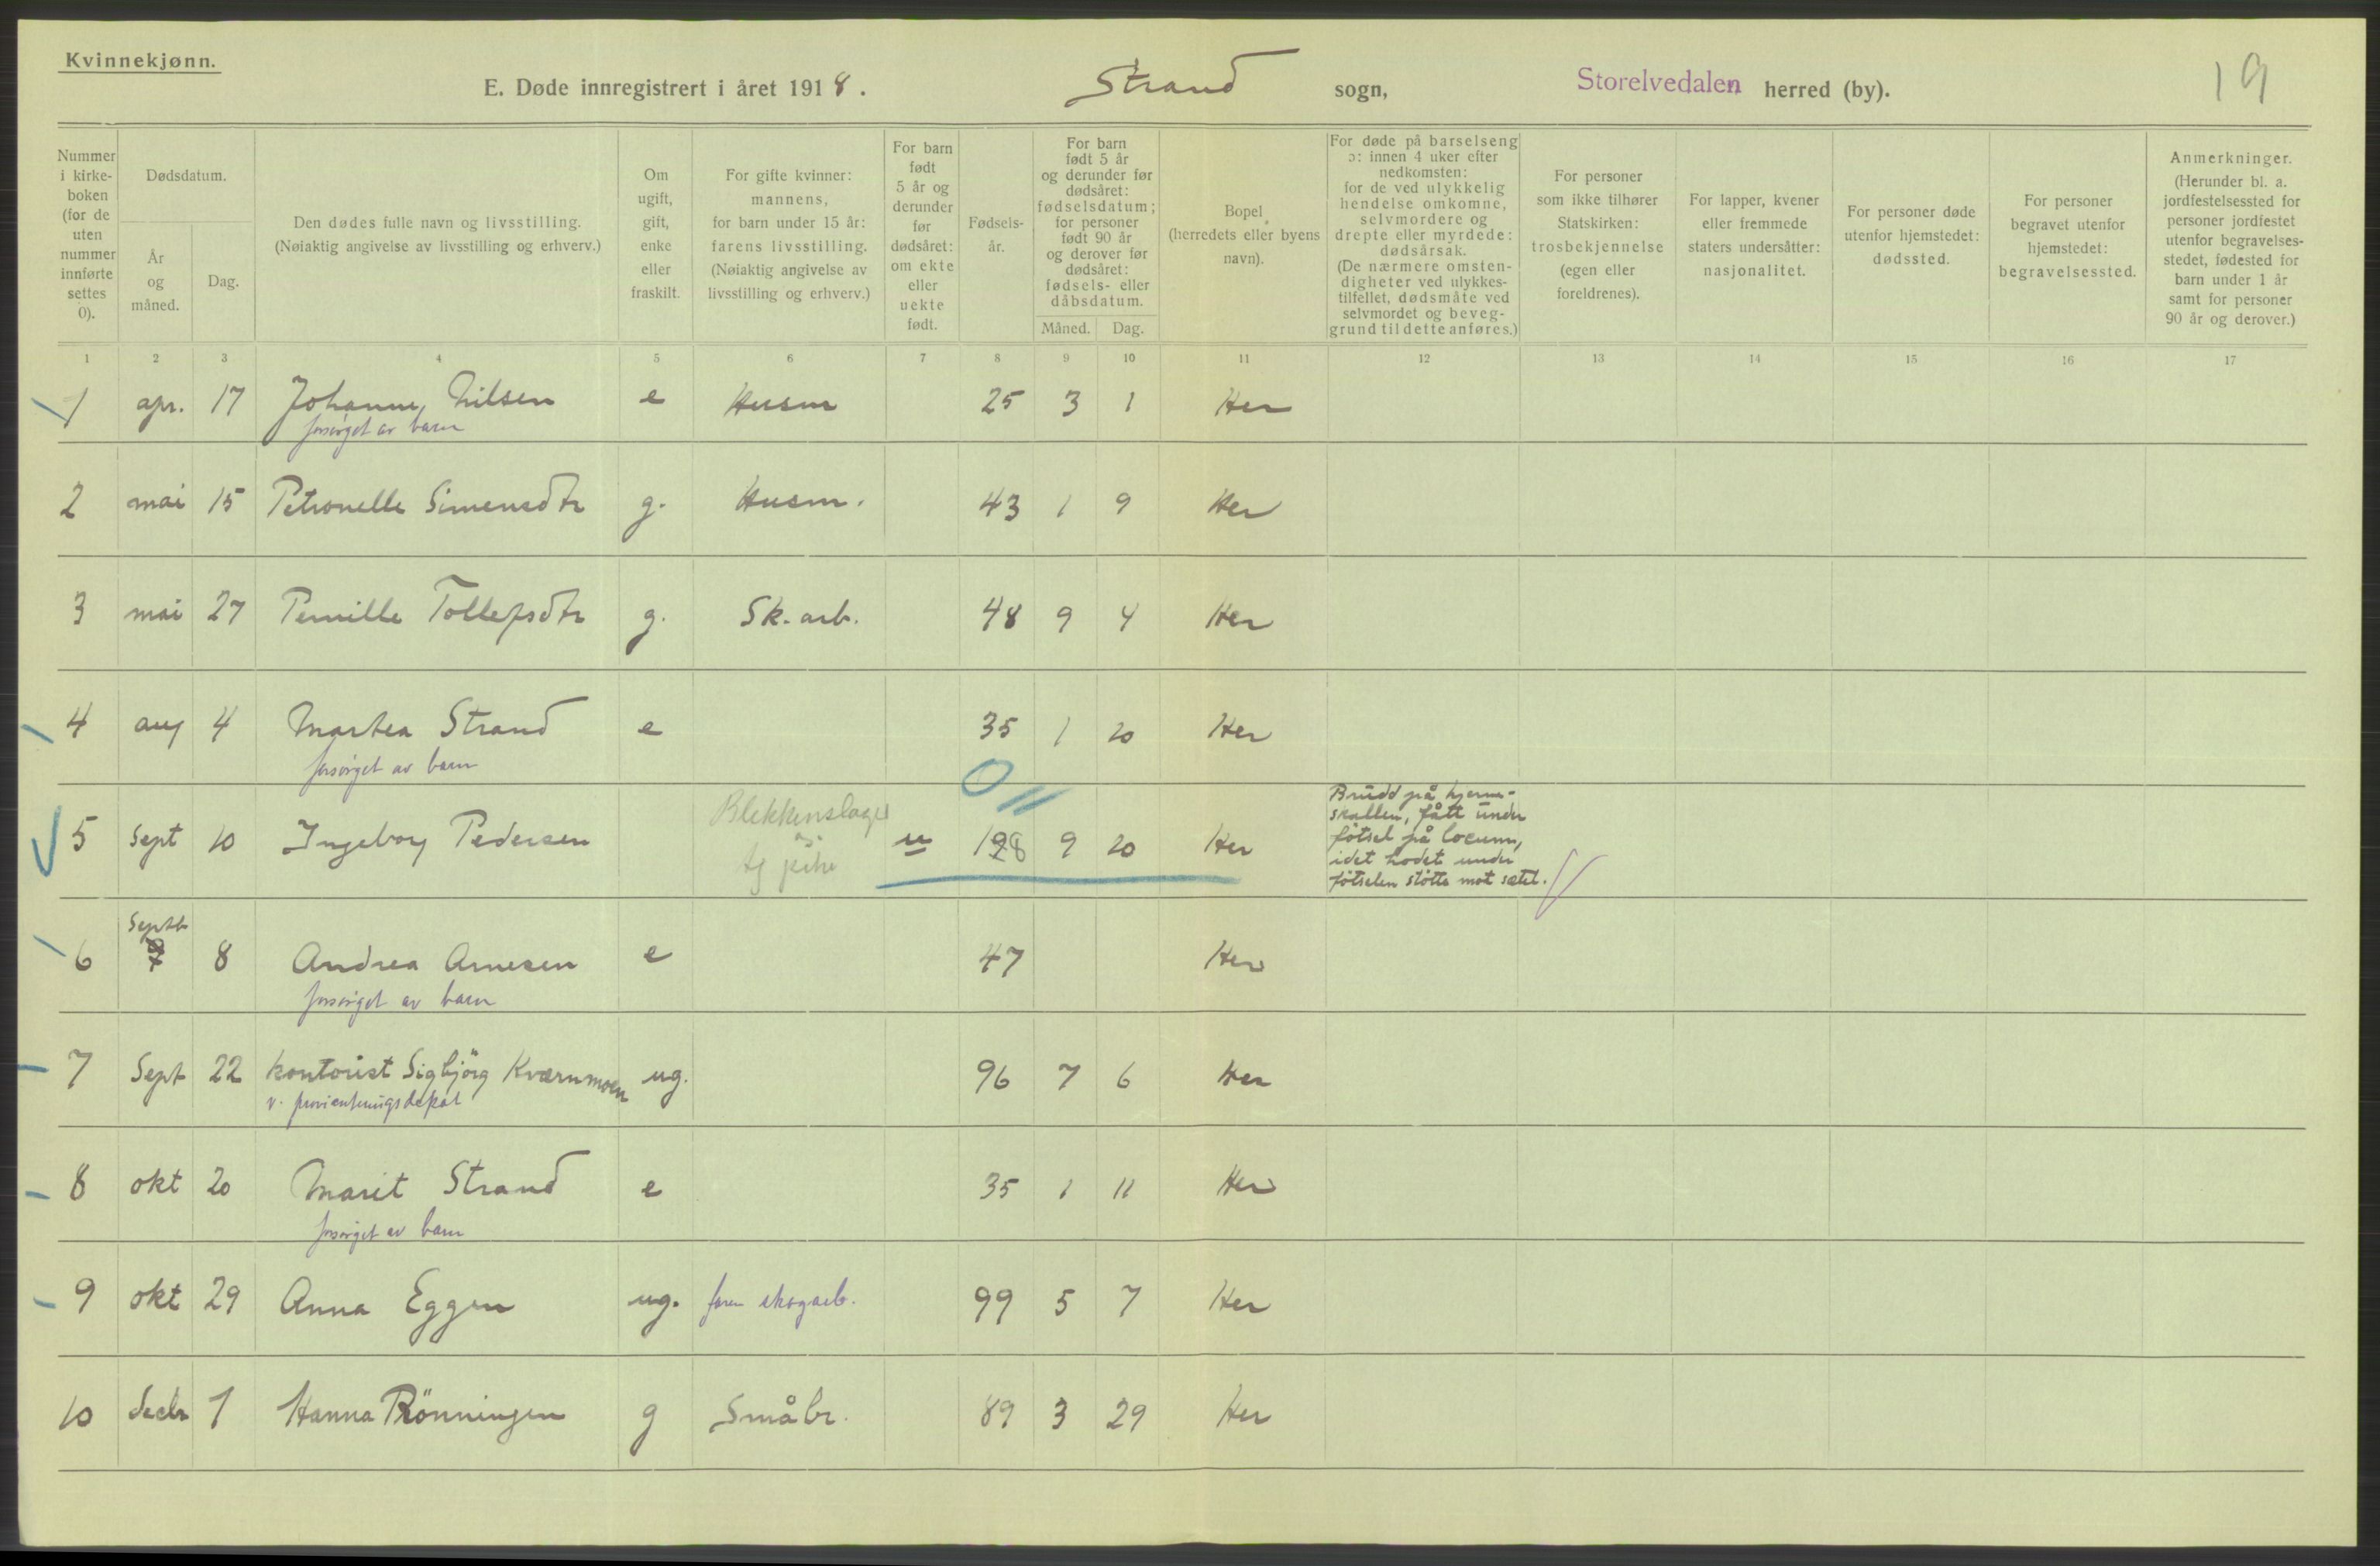 Kvinnekjønn.
E. Døde innregistrert i året 1918. Strand sogn, Storelvedalen herred (by). 19
Nummer i kirkeboken (for de uten nummer innførte settes 0).
Dødsdatum.
År og måned.
Dag.
Den dødes fulle navn og livsstilling.
(Nøiaktig angivelse av livsstilling og erhverv.)
Om ugift, gift, enke eller fraskilt.
For gifte kvinner: mannens, for barn under 15 år: farens livsstilling. (Nøiaktig angivelse av livsstilling og erhverv.)
For barn født 5 år og derunder før dødsåret: om ekte eller uekte født.
Fødselsår.
For barn født 5 år og derunder før dødsåret: fødselsdatum; for personer født 90 år og derover før dødsåret: fødsels- eller dåbsdatum.
Måned. Dag.
Bopel (herredets eller byens navn).
For døde på barselseng ɔ: innen 4 uker efter nedkomsten: for de ved ulykkelig hendelse omkomne, selvmordere og drepte eller myrdede: dødsårsak. (De nærmere omstendigheter ved ulykkestilfellet, dødsmåte ved selvmordet og beveggrund til dette anføres.)
For personer som ikke tilhører Statskirken: trosbekjennelse (egen eller foreldrenes).
For lapper, kvener eller fremmede staters undersåtter: nasjonalitet.
For personer døde utenfor hjemstedet: dødssted.
For personer begravet utenfor hjemstedet: begravelsessted.
Anmerkninger. (Herunder bl. a. jordfestelsessted for personer jordfestet utenfor begravelsesstedet, fødested for barn under 1 år samt for personer 90 år og derover.)
1 2 3 4 5 6 7 8 9 10 11 12 13 14 15 16 17
1 apr. 17 Johanne Nilsen e Husm 25 3 1 Her
forsörget av barn
2 mai 15 Petronelle Simensdtr g. Husm. 43 1 9 Her
3 mai 27 Pernille Tollefsdtr g. Sk. arb. 48 9 4 Her
4 aug 4 Martea Strand e 35 1 20 Her
forsörget av barn
5 Sept 10 Ingeborg Pedersen Blekkenslager og tj pike u 18 9 20 Her
Brudd på hjerne-
skallen, fått under
fötsel på locum,
idet hodet under
fötselen stötte mot sætet.
6 Septb 8 Andrea Arnesen e 47 Her
forsörget av barn
7 Sept 22 kontorist Sigbjörg Kværnmoen ug. 96 7 6 Her
v. provienteringsdepot
8 okt 20 Marit Strand e 35 1 11 Her
forsörget av barn
9 okt 29 Anna Eggen ug. faren skogarb. 99 5 7 Her
10 decbr 1 Hanna Rönningen g Småbr. 89 3 29 Her